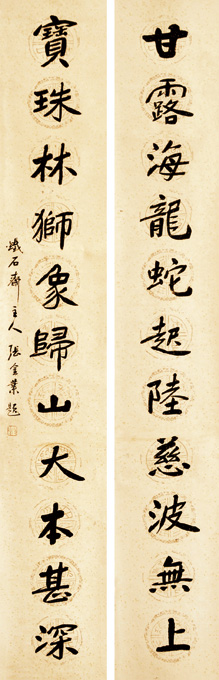 甘露海龍蛇起陸慈波無上
寶珠林獅象歸山大本甚深
石齋主人張金業題